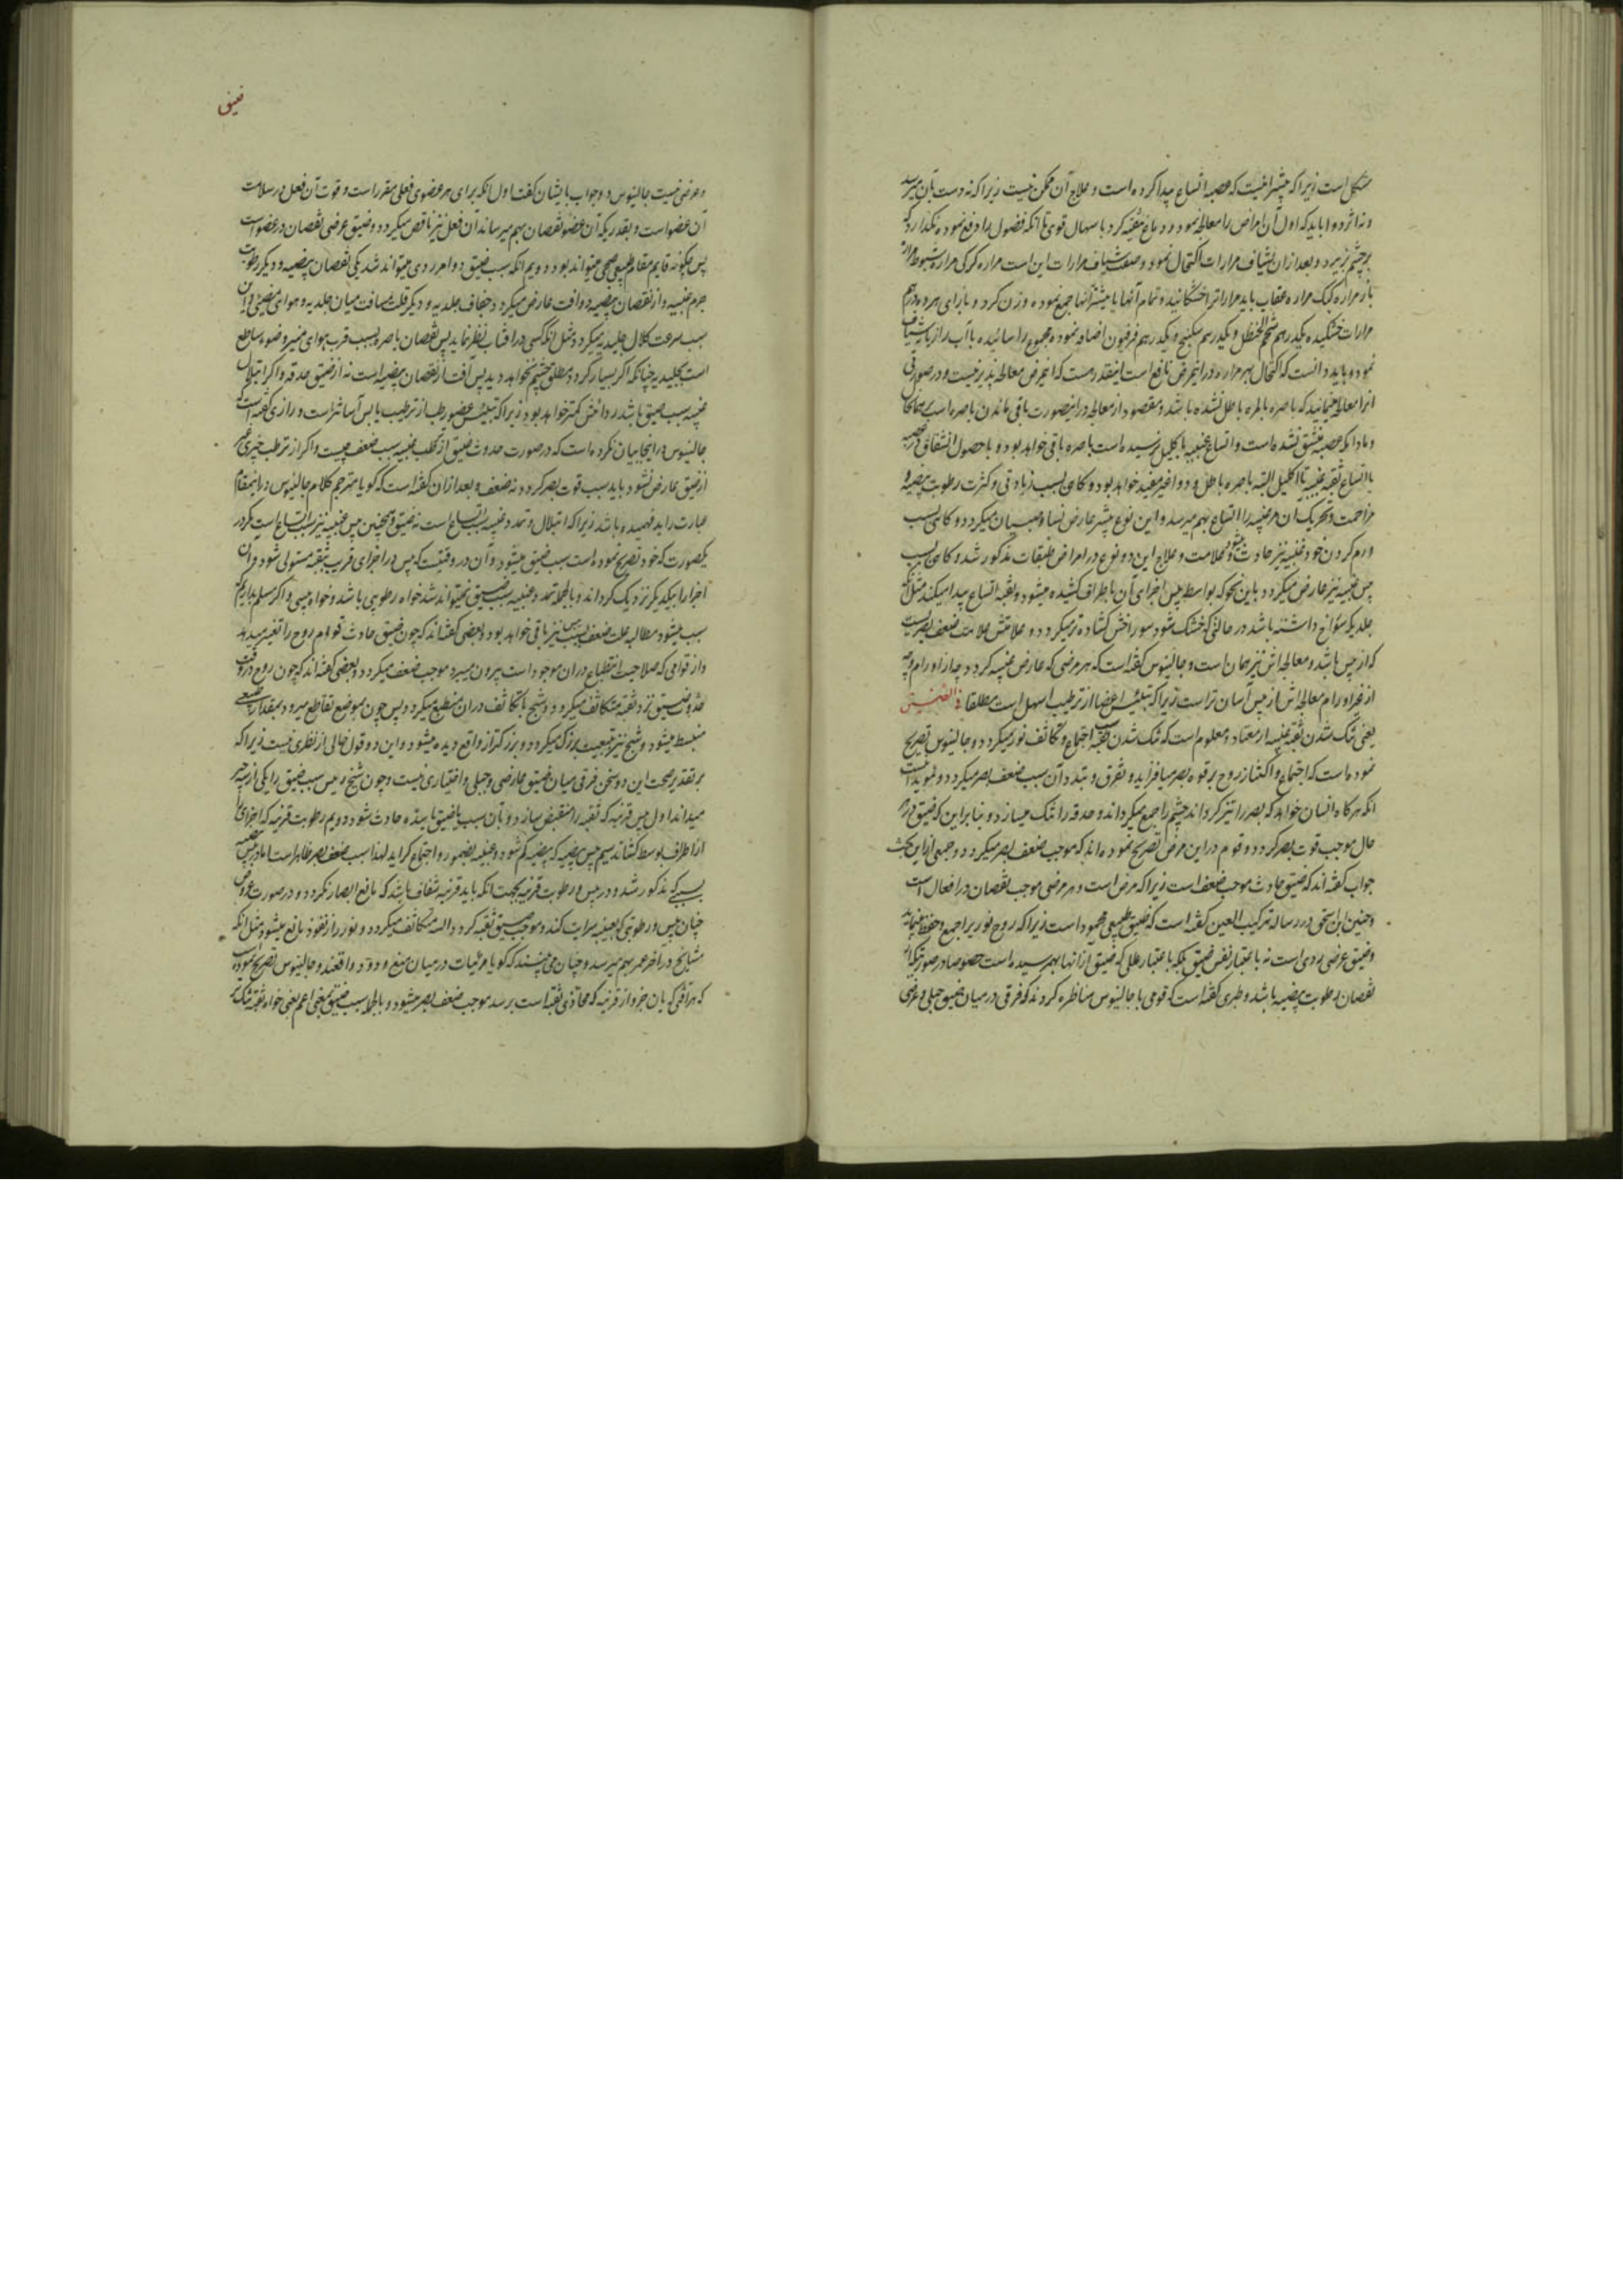 مشکل است زیرا که بیشتر آنست که عصبه اتساع پیدا کرده است و علاج آن ممکن نیست زیرا که نه دست بآن میرسد
و نه اثر دوا باید که اول آن امراض را معالجه نمود و دماغ را تنقیه کرد باسهال قوی تا آنکه فضول را دفع نموده نگذارد که
بچشم بریزد و بعد از آن بشیاف مرارات اکتحال نمود و صنعت شیاف مرارات این است مراره کرکی مراره شبوط مراره
باز مراره کبک مراره عقاب باید مرارات را خشکانید و تمام آنها یا بیشتر آنها جمع نموده وزن کرد و بازای هر ده درهم
مرارات خشکیده یکدرهم شحم الحنظل و یکدرهم سکبینج و یکدرهم فرفیون اضافه نموده مجموع را سائیده با آب رازیانه شیاف
نمود و باید دانست که اکتحال بهر مراره در این مرض نافع است اینقدر هست که این مرض معالجه پذیر نیست و در صورتی
این را معالجه مینمایند که باصره بالمره باطل نشده باشد و مقصود از معالجه در اینصورت باقی ماندن باصره است بر همان حال
و مادامکه عصبه منشق نشده است و اتساع عنبیه باکلیل نرسیده است باصره باقی خواهد بود و با حصول انشقاق در عصبه
یا اتساع ثقبه عنبیه تا اکلیل البته باصره باطل و دوا غیر مفید خواهد بود و گاهی بسبب زیادتی و کثرت رطوبت بیضیه و
مزاحمت و تحریک آن مر عنبیه را اتساع بهم میرسد و این نوع بیشتر عارض نساء و صبیان میگردد و گاهی بسبب
ورم کردن خود عنبیه نیز حادث میشود و علامت و علاج این دو نوع در امراض طبقات مذکور شد و گاهی بسبب
یبس عنبیه نیز عارض میگردد باین نحو که بواسطه یبس اجزای آن باطراف کشیده میشود و ثقبه اتساع پیدا میکند مثل آنکه
جلدیکه سوراخ داشته باشد در حالتی که خشک شود سوراخش گشاده تر میگردد و علامتش علامت ضعف بصر است
که از یبس باشد و معالجه اش نیز همان است و جالینوس گفته است که هر مرضی که عارض عنبیه گردد چه از اورام و چه
از غیر اورام معالجه اش از یبس آسان تر است زیرا که تلیین اعضا از ترطیب اسهل است مطلقا فی الضیق
یعنی تنگ شدن ثقبه عنبیه از معتاد و معلوم است که تنگ شدن ثقبه سبب اجتماع و تکاثف نور میگردد و جالینوس تصریح
نموده است که اجتماع و اکتناز روح بر قوه بصر میافزاید و تفرق و تبدد آن سبب ضعف بصر میگردد و مؤید اینست
آنکه هرگاه انسان خواهد که بصر را تیز گرداند چشم را جمع میگرداند و حدقه را تنگ میسازد و بنا بر این که ضیق در هر
حال موجب قوت بصر گردد و قوم در این مرض تصریح نموده اند که موجب ضعف بصر میگردد و جمعی از این بحث
جواب گفته اند که ضیق حادث موجب ضعف است زیرا که مرض است و هر مرضی موجب نقصان در افعال است
و حنین ابن اسحق در رساله ترکیب العین گفته است که ضیق طبیعی محمود است زیرا که روح نوریرا جمع و حفظ مینماید
و ضیق عرضی ردی است نه باعتبار نفس ضیق بلکه باعتبار عللی که ضیق از آنها بهمرسیده است خصوصا در صورتیکه از
نقصان رطوبت بیضیه باشد و طبری گفته است که قومی با جالینوس مناظره کردند که فرقی در میان ضیق جبلی و عرضی
ضیق
و عرضی نیست جالینوس در جواب بایشان گفت اول آنکه برای هر عضوی فعلی مقرر است و قوت آن فعل در سلامت
آن عضو است و بقدریکه آن عضو نقصان بهم میرساند آن فعل نیز ناقص میگردد و ضیق عرضی نقصان در عضو است
پس چگونه قایم مقام طبیعی صحی میتواند بود دویم آنکه سبب ضیق دو امر ردی میتواند شد یکی نقصان بیضیه و دیگر رطوبت
جرم عنبیه و از نقصان بیضیه دو آفت عارض میگردد جفاف جلدیه و دیگر قلت مسافت میان جلدیه و هوای مضیئ و این
سبب سرعت کلال جلیدیه میگردد مثل آنکه کسی در آفتاب نظر نماید پس نقصان باصره بسبب قرب هوای منیر و ضوء ساطع
است بجلیدیه چنانکه اگر بسیار گردد مطلق چشم نخواهد دید پس آفت از نقصان بیضیه است نه از ضیق حدقه و اگر ابتلال
عنبیه سبب ضیق باشد رداءتش کمتر خواهد بود زیرا که تیبیس عضو رطب از ترطیب یابس آسانتر است و رازی گفته است که
جالینوس در اینجا بیان نکرده است که در صورت حدوث ضیق از ترطب عنبیه سبب ضعف چیست و اگر از ترطب چیزی غیر
از ضیق عارض نشود باید سبب قوت بصر گردد نه ضعف و بعد از آن گفته است که گویا مترجم کلام جالینوس در اینمقام
عبارت را بد فهمیده باشد زیرا که ابتلال و تمدد عنبیه سبب اتساع است نه ضیق و همچنین یبس عنبیه نیز سبب اتساع است مگر در
یکصورت که خود تصریح نموده است سبب ضیق میشود و آن در وقتیست که یبس در اجزای قریب بثقبه مستولی شود و آن
اجزا را بیکدیگر نزدیک گرداند و بالجمله تمدد عنبیه سبب ضیق نمیتواند شد خواه رطوبی باشد و خواه یبسی و اگر مسلم بداریم که
سبب میشود مطالبه علت ضعف بسبب آنها نیز باقی خواهد بود و بعضی گفته اند که چون ضیق حادث قوام روح را تغییر میدهد
و از قوامی که صلاحیت انطباع در آن موجود است بیرون میبرد موجب ضعف میگردد و بعضی گفته اند که چون روح در وقت
حدوث ضیق نزد ثقبه متکاثف میگردد و شبح با تکاثف در آن منطبع میگردد پس چون بموضع تقاطع میرود بمقدار طبیعی
منبسط میشود و شبح نیز بتبعیت بزرگ میگردد و بزرگتر از واقع دیده میشود و این دو قول خالی از نظری نیست زیرا که
بر تقدیر صحت این دو سخن فرقی میان ضیق عارضی و جبلی و اختیاری نیست و چون شیخ رئیس سبب ضیق را یکی از سه چیز
میداند اول یبس قرنیه که ثقبه را منقبض سازد و بآن سبب یا ضیق یا سده حادث شود دویم رطوبت قرنیه که اجزای آنرا
از اطراف بوسط کشاند سیم یبس بیضیه که بیضیه کم شود و عنبیه بضمور و اجتماع گراید لهذا سبب ضعف بصر ظاهر است اما در یبس بیضیه
بسببی که مذکور شد و در یبس و رطوبت قرنیه بجهت آنکه باید قرنیه شفاف باشد که مانع ابصار نگردد و در صورت عروض
چنان یبس و رطوبتی که بعنبیه سرایت کند و موجب ضیق ثقبه گردد البته متکاثف میگردد و نور را از نفوذ مانع میشود مثل آنکه
مشایخ در آخر عمر بهم میرسد و چنان می بینند که گویا مرئیات در میان میغ و دود واقعند و جالینوس تصریح نموده
که هر آفتی که بآن جزو از قرنیه که محاذی ثقبه است برسد موجب ضعف بصر میشود و بالجمله سبب ضیق بمعنی اعم یعنی خواه ثقبه تنگتر